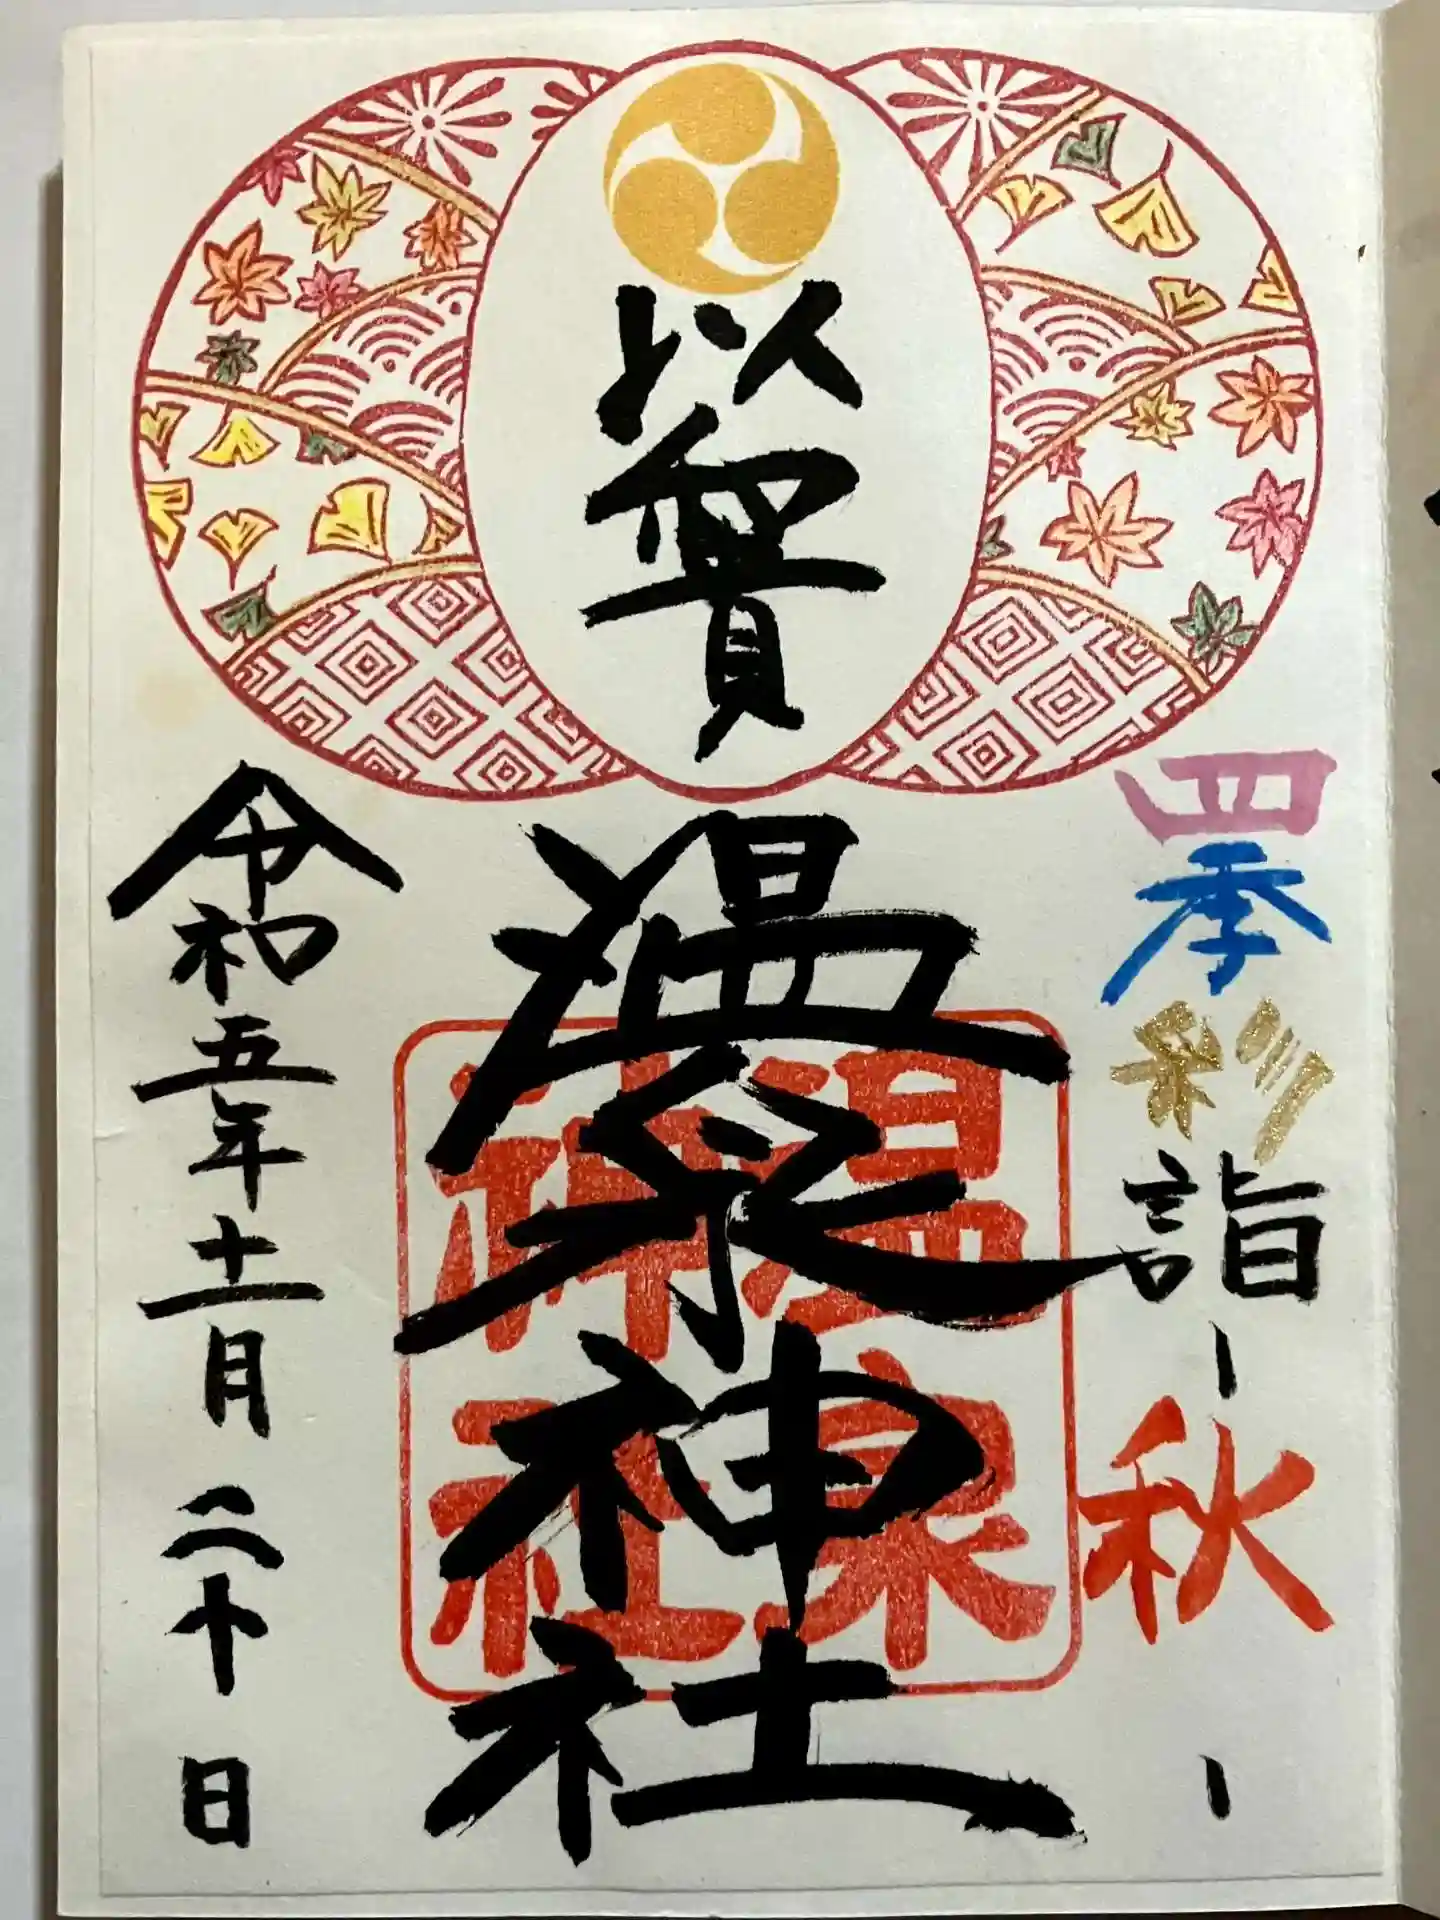 四季彩詣
-秋-
以
温泉神社
温泉神社
令和五年十一月二十日